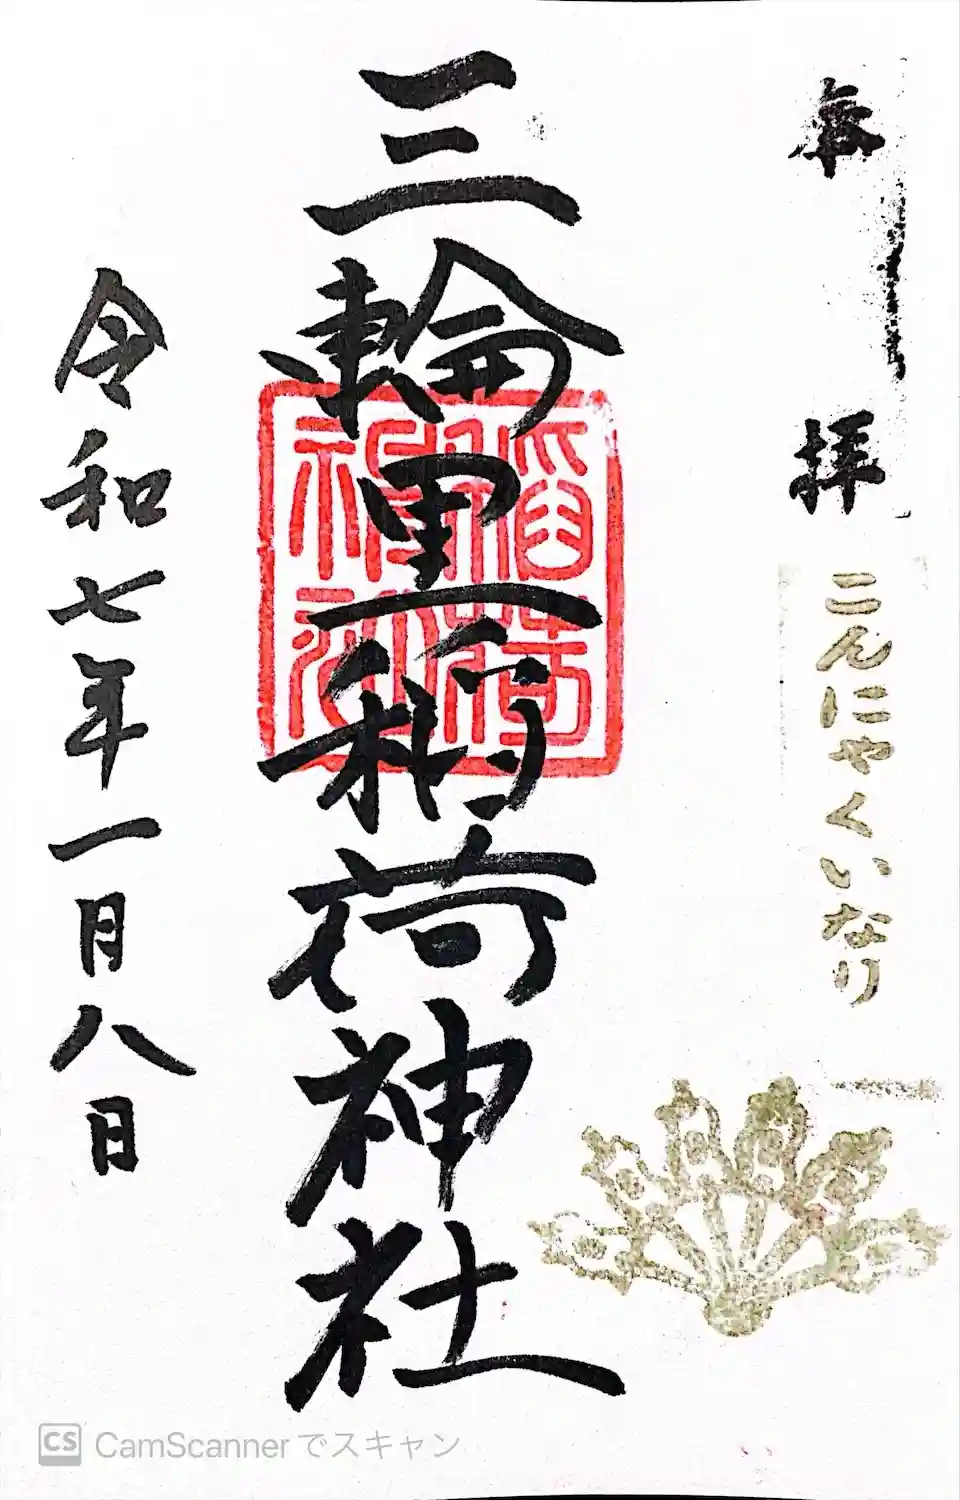 奉拝
こんにやくいなり
三輪里稲荷神社
稲荷神社
令和七年一月八日
CS CamScannerでスキャン